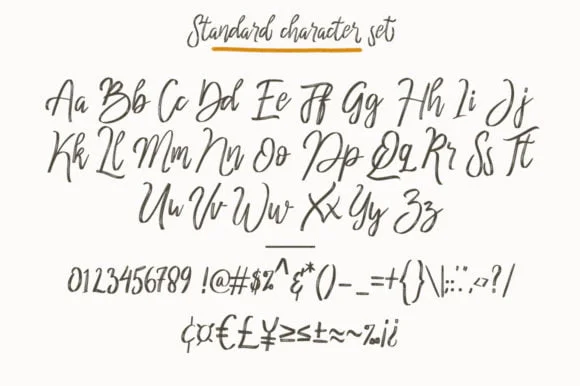 Standard character set
Aa Bb Cc Dd Ee Ff Gg Hh Ii Jj
Kk Ll Mm Nn Oo Pp Qq Rr Ss Tt
Uu Vv Ww Xx Yy Zz
0123456789 !@#$%^&*()-_=+{}\|;:'",.<>?/
¢¤€£¥≥≤±≈~‰¡¿